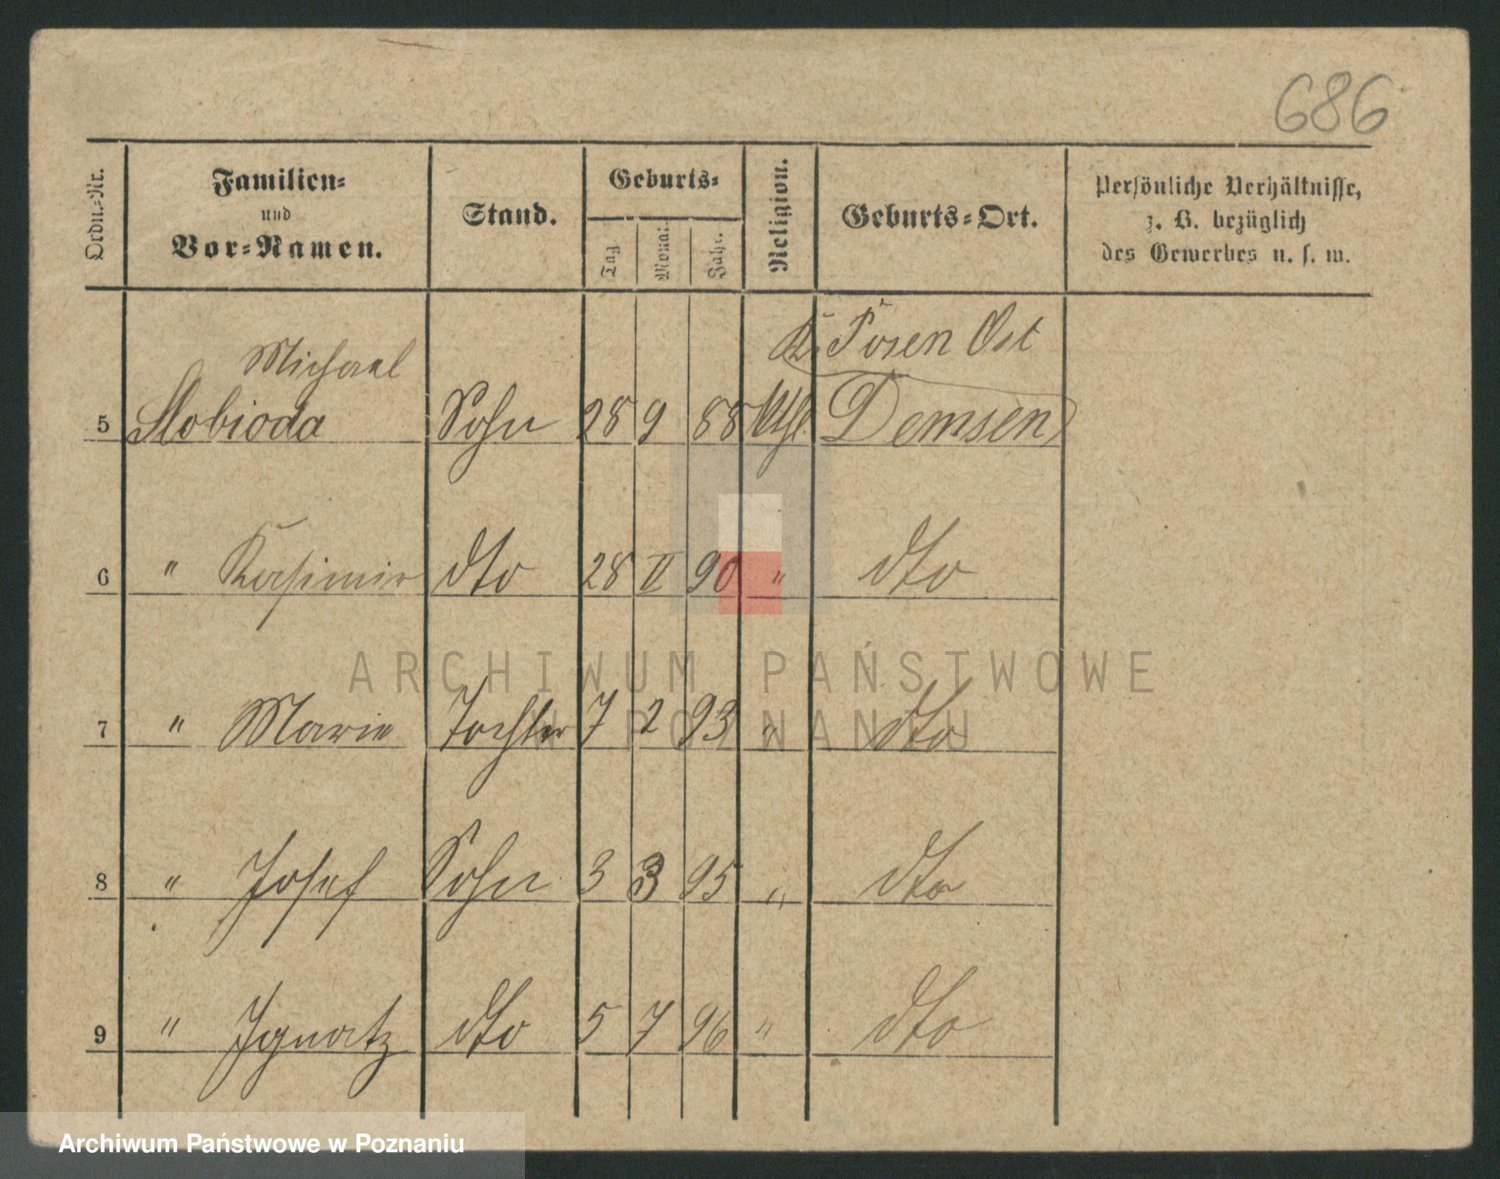 686
Ordn.-Nr.
Familien-
und
Vor-Namen.
Stand.
Geburts-
Tag
Monat
Jahr.
Religion.
Geburts-Ort.
Persönliche Verhältnisse,
z. B. bezüglich
des Gewerbes u. s. w.
Michael K. Posen Ost
5 Slobioda Sohn 28 9 88 kth. Demsen
6 " Kasimir dto 28 II 90 " dto
ARCHIWUM PAŃSTWOWE
W POZNANIU
7 " Marie Tochter 7 2 93 " dto
8 " Josef Sohn 3 3 95 " dto
9 " Ignatz dto 5 7 96 " dto
Archiwum Państwowe w Poznaniu